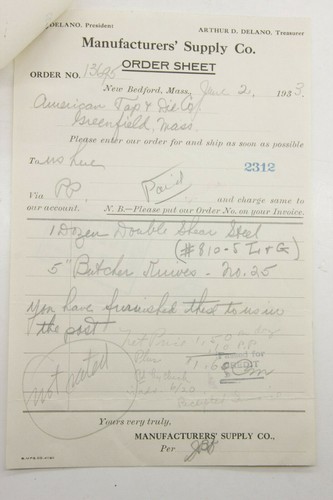 DELANO, President
ARTHUR D. DELANO, Treasurer
Manufacturers' Supply Co.
ORDER SHEET
ORDER NO. 13695
New Bedford, Mass., June 2, 1933.
American Tap & Die Co
Greenfield, Mass.
Please enter our order for and ship as soon as possible
To us here
2312
Via PP. Paid and charge same to
our account. N. B.—Please put our Order No. on your Invoice.
1 Dozen Double Shear Steel
(#810-5 L+G)
5" Butcher Knives - No. 25
You have furnished these to us in
the past
not rated
Net Price
Yours very truly,
MANUFACTURERS' SUPPLY CO.,
Per